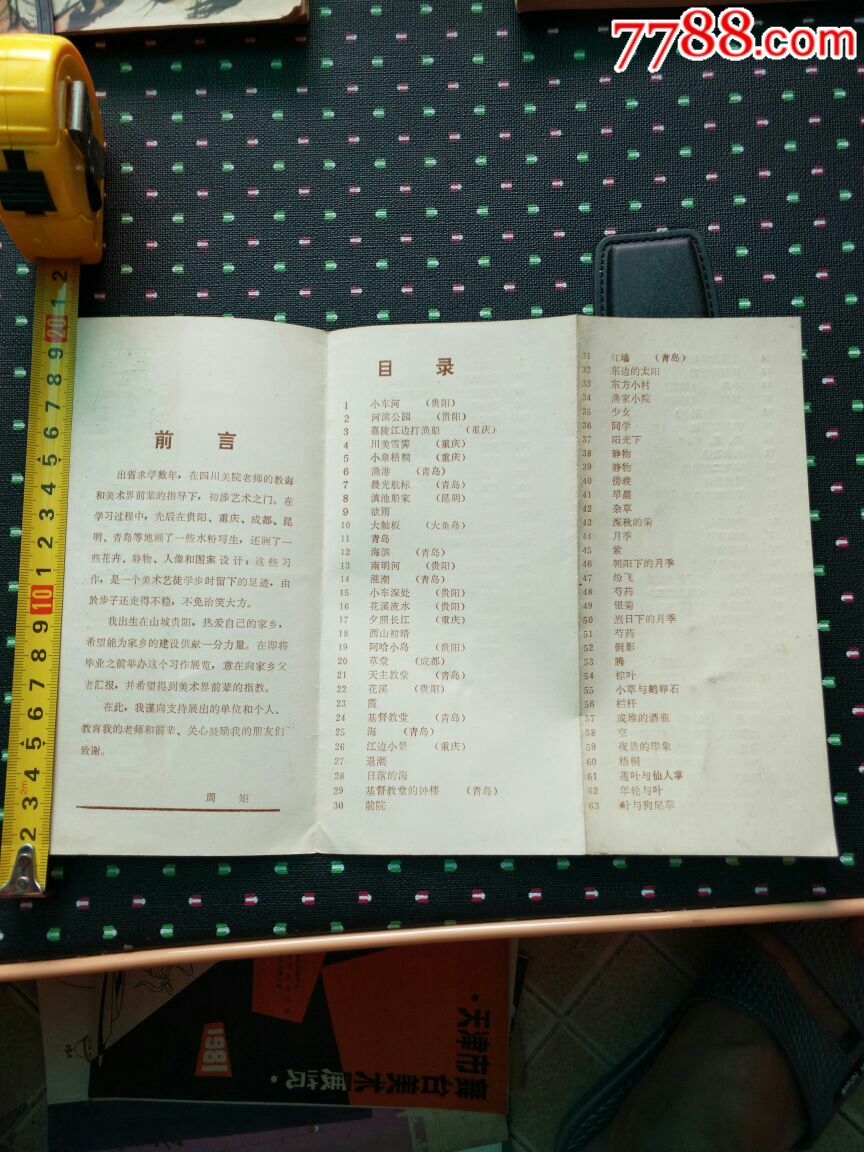 7788.com
前 言
出省求学数年,在四川美院老师的教诲
和美术界前辈的指导下,初涉艺术之门。在
学习过程中,先后在贵阳、重庆、成都、昆
明、青岛等地画了一些水粉写生,还画了一
些花卉、静物、人像和图案设计;这些习
作,是一个美术艺徒学步时留下的足迹,由
於步子还走得不稳,不免治笑大方。
我出生在山城贵阳,热爱自己的家乡,
希望能为家乡的建设供献一分力量。在即将
毕业之前举办这个习作展览,意在向家乡父
老汇报,并希望得到美术界前辈的指教。
在此,我谨向支持展出的单位和个人、
教育我的老师和前辈、关心鼓励我的朋友们
致谢。
周 矩
目 录
1 小车河 (贵阳)
2 河滨公园 (贵阳)
3 嘉陵江边打渔船 (重庆)
4 川美雪霁 (重庆)
5 小泉梧桐 (重庆)
6 渔港 (青岛)
7 晨光航标 (青岛)
8 滇池船家 (昆明)
9 欲雨
10 大舢板 (大鱼岛)
11 青岛
12 海滨 (青岛)
13 南明河 (贵阳)
14 涨潮 (青岛)
15 小车深处 (贵阳)
16 花溪流水 (贵阳)
17 夕照长江 (重庆)
18 西山初晴
19 阿哈小岛 (贵阳)
20 草堂 (成都)
21 天主教堂 (青岛)
22 花溪 (贵阳)
23 霞
24 基督教堂 (青岛)
25 海 (青岛)
26 江边小景 (重庆)
27 退潮
28 日落的海
29 基督教堂的钟楼 (青岛)
30 前院
31 红墙 (青岛)
32 东边的太阳
33 东方小村
34 渔家小院
35 少女
36 同学
37 阳光下
38 静物
39 静物
40 傍晚
41 早晨
42 杂草
43 深秋的菊
44 月季
45 紫
46 朝阳下的月季
47 纷飞
48 芍药
49 银菊
50 烈日下的月季
51 芍药
52 倒影
53 腾
54 棕叶
55 小草与鹅卵石
56 栏杆
57 成堆的酒瓶
58 空
59 夜景的印象
60 梧桐
61 莲叶与仙人掌
62 年轮与叶
63 叶与狗尾草
1981
·天津市
舞台美术展览·